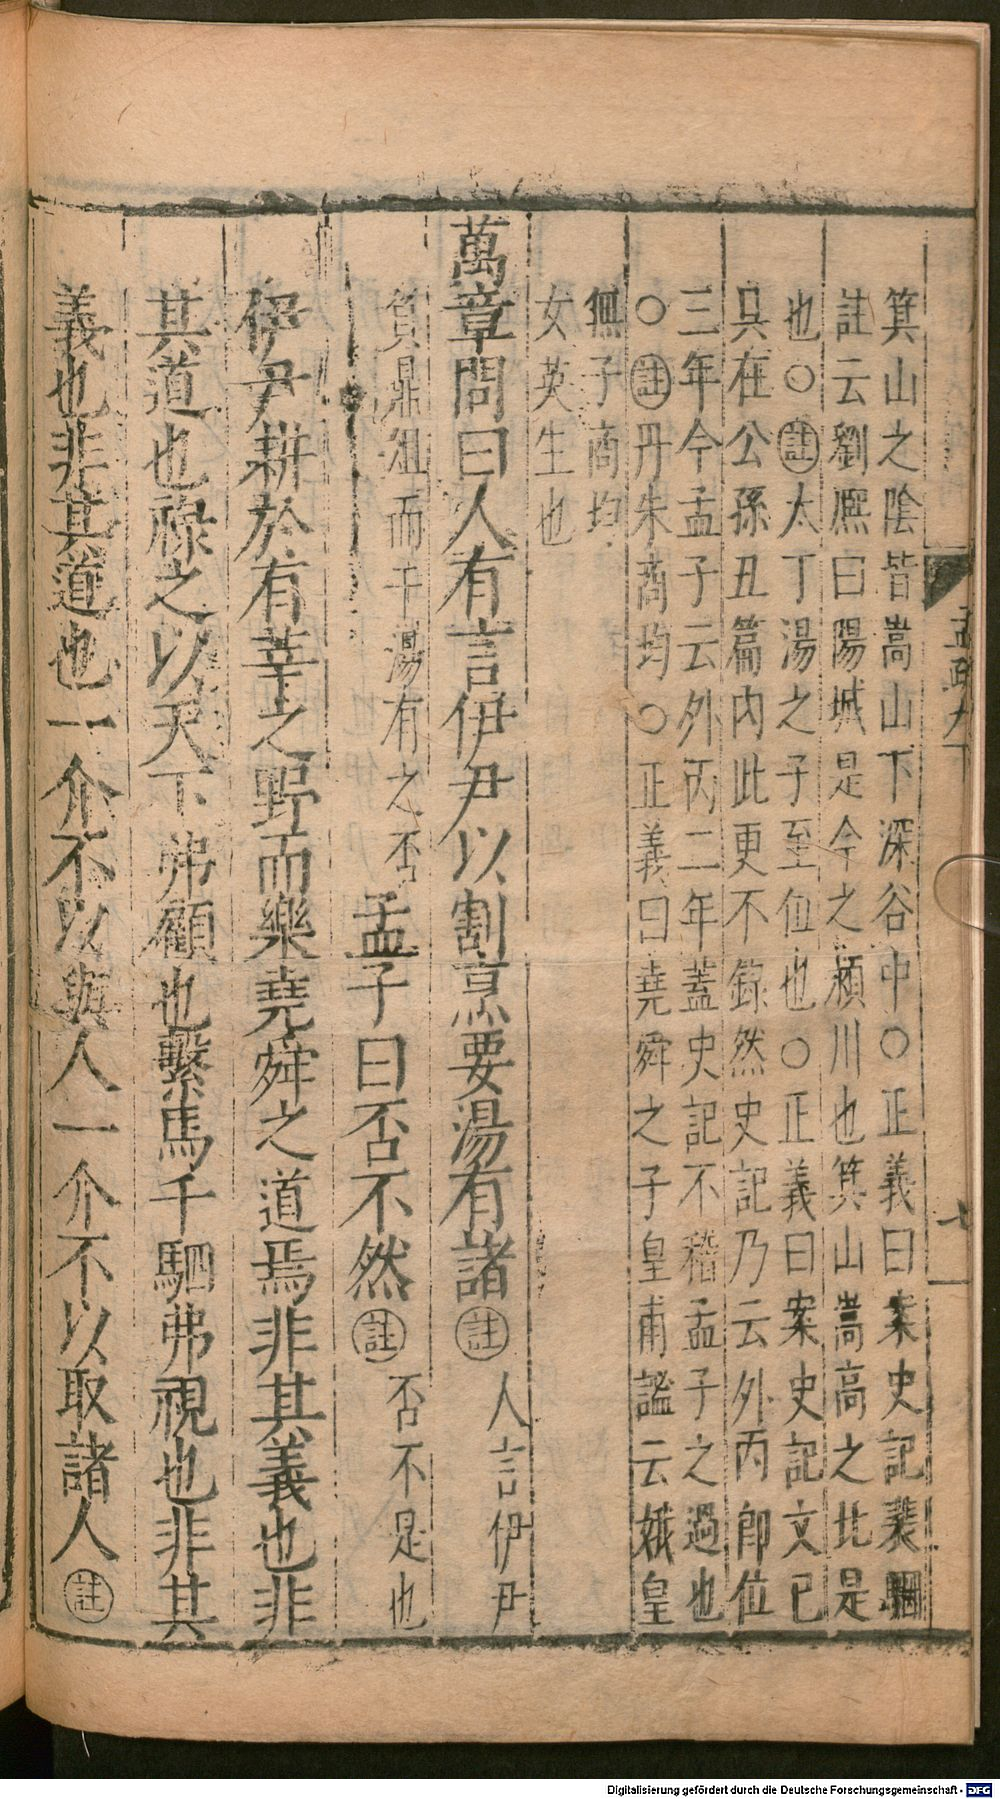 孟疏九下
七
箕山之陰皆嵩山下深谷中○正義曰案史記裴駰
註云劉熈曰陽城是今之潁川也箕山嵩高之北是
也○註太丁湯之子至位也○正義曰案史記文已
具在公孫丑篇内此更不錄然史記乃云外丙即位
三年今孟子云外丙二年蓋史記不稽孟子之過也
○註丹朱商均○正義曰堯舜之子皇甫謐云娥皇
無子商均
女英生也
萬章問曰人有言伊尹以割烹要湯有諸註人言伊尹
負鼎俎而干湯有之否孟子曰否不然註否不是也
伊尹耕於有莘之野而樂堯舜之道焉非其義也非
其道也祿之以天下弗顧也繫馬千駟弗視也非其
義也非其道也一介不以與人一介不以取諸人註
Digitalisierung gefördert durch die Deutsche Forschungsgemeinschaft - DFG